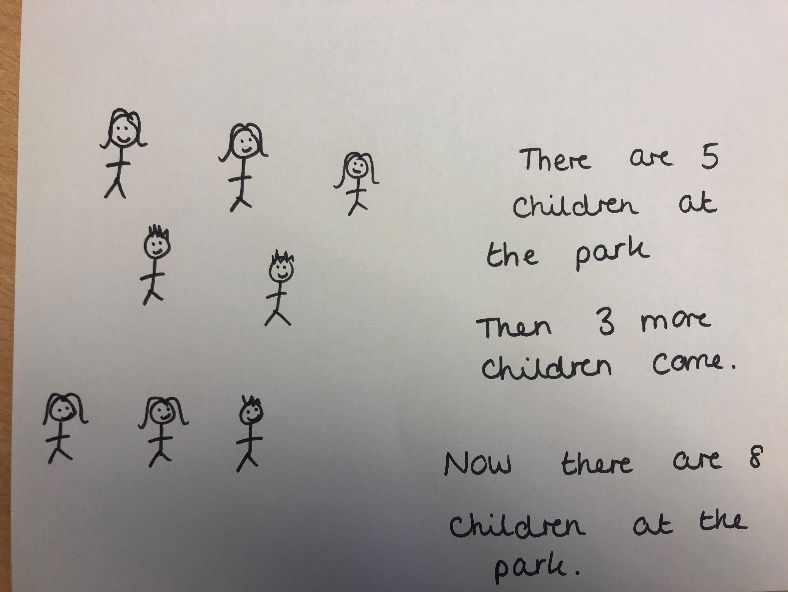 There are 5
children at
the park
Then 3 more
children come.
Now there are 8
children at the
park.